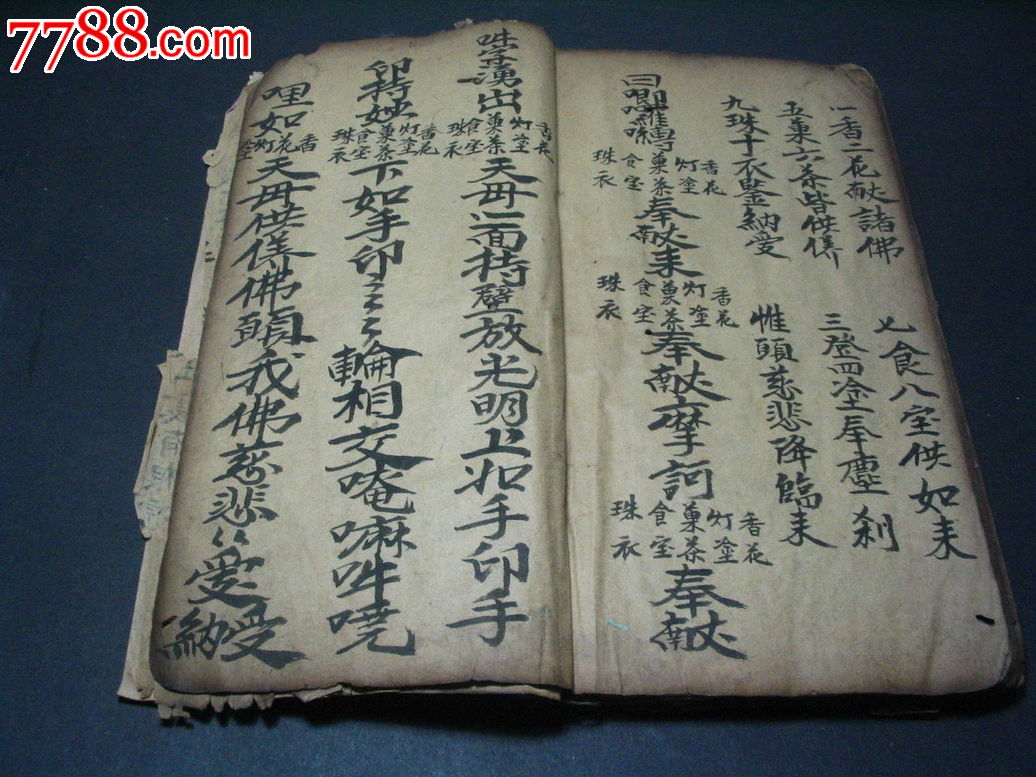 一香二花献諸佛
三登四塗奉塵刹
五菓六茶皆供儀
七食八宝供如来
九珠十衣鑒納受
惟願慈悲降臨来
香花灯塗菓茶食宝珠衣奉献来香花灯塗菓茶食宝珠衣奉献摩訶香花灯塗菓茶食宝珠衣奉献
吽字湧出香花灯塗菓茶食宝珠衣天母二面持壁放光明上如手印手
印持妙香花灯塗菓茶食宝珠衣下如手印々々輪相交唵嘛吽嘵
哩如香花灯塗天母供儀佛願我佛慈悲々愛納受
7788.com